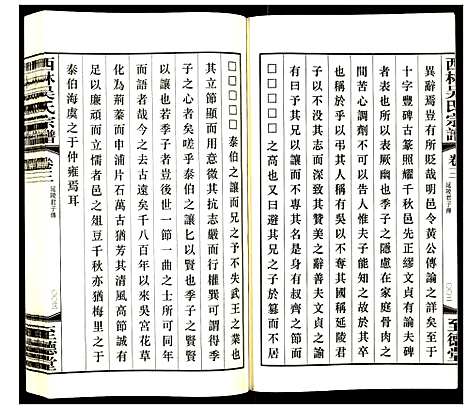 西林吴氏宗譜 卷三 延陵君子傳
至德堂
異辭焉豈有所貶哉明邑令黃公傳論之詳矣至于
十字豐碑古篆照耀千秋邑先正繆文貞有論夫碑
者表也所以表厥幽也季子之心苦矣在家庭骨肉之
間苦心調劑不可以告人惟夫子能知之故於其卒
也稱於乎以弔其人曰有吳以吳不奪其國稱延陵君
子所以深致其贊美之辭善夫文貞之論曰太史公
敘吳世家以讓國而兄之弟之子於篡而不居
曰君子曰予其以讓而不予其以
□□□□□泰伯之讓而兄之子不失武王之業也
其立節顯而微其抗志嚴而婉其行權巽可得季
子之心者矣嗟乎泰伯之讓以賢也季子之讓以賢
以讓也若季子者豈後世一節一曲之士所可同年
而語者哉今之去古遠矣千八百年以來吳宮花草
化為荊蓁而申浦片石萬古猶芳其清風高節誠有
足以廉頑而立懦者邑之俎豆千秋亦猶梅里之于
泰伯海虞之于仲雍焉耳
西林吴氏宗譜 卷三 延陵君子傳
至德堂